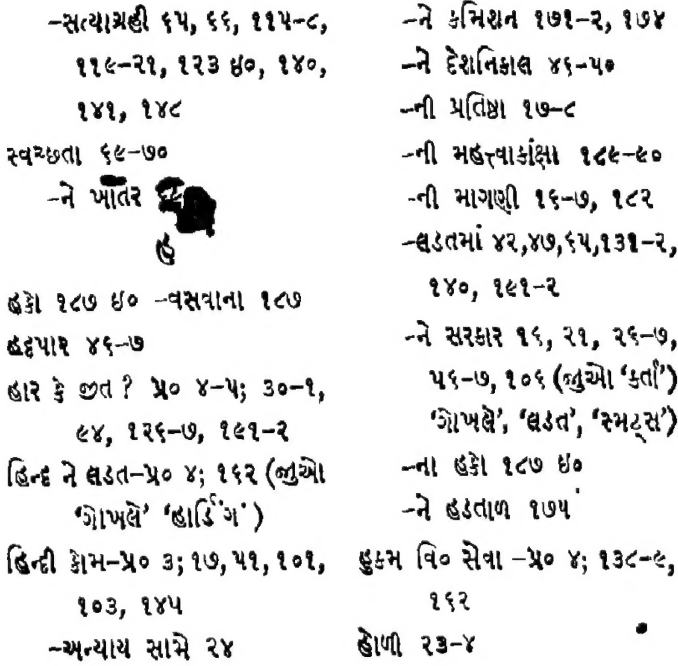 –સત્યાગ્રહી ૬૫, ૬૬, ૧૧૫–૮,
૧૧૯–૨૧, ૧૨૩ ઇ૦, ૧૪૦,
૧૪૧, ૧૪૮
સ્વચ્છતા ૬૯–૭૦
–ને ખાતર
હ
હકો ૧૮૭ ઇ૦ –વસવાના ૧૮૭
હદપાર ૪૬–૭
હાર કે જીત ? પ્ર૦ ૪–૫; ૩૦–૧,
૯૪, ૧૨૬–૭, ૧૯૧–૨
હિન્દ ને લડત–પ્ર૦ ૪; ૧૬૨ (જુઓ
‘ગોખલે’ ‘હાર્ડિંગ’)
હિન્દી કોમ–પ્ર૦ ૩; ૧૭, ૫૧, ૧૦૧,
૧૦૩, ૧૪૫
–અન્યાય સામે ૨૪
–ને કમિશન ૧૭૧–૨, ૧૭૪
–ને દેશનિકાલ ૪૬–૫૦
–ની પ્રતિષ્ઠા ૧૭–૮
–ની મહત્ત્વાકાંક્ષા ૧૮૯–૯૦
–ની માગણી ૧૬–૭, ૧૮૨
–લડતમાં ૪૨,૪૭,૬૫,૧૩૧–૨,
૧૪૦, ૧૯૧–૨
–ને સરકાર ૧૬, ૨૧, ૨૬–૭,
૫૬–૭, ૧૦૬ (જુઓ ‘કર્તા’)
‘ગોખલે’, ‘લડત’, ‘સ્મટ્સ’)
–ના હકો ૧૮૭ ઇ૦
–ને હડતાળ ૧૭૫
હુકમ વિ૦ સેવા –પ્ર૦ ૪; ૧૩૮–૯,
૧૬૨
હોળી ૨૩–૪